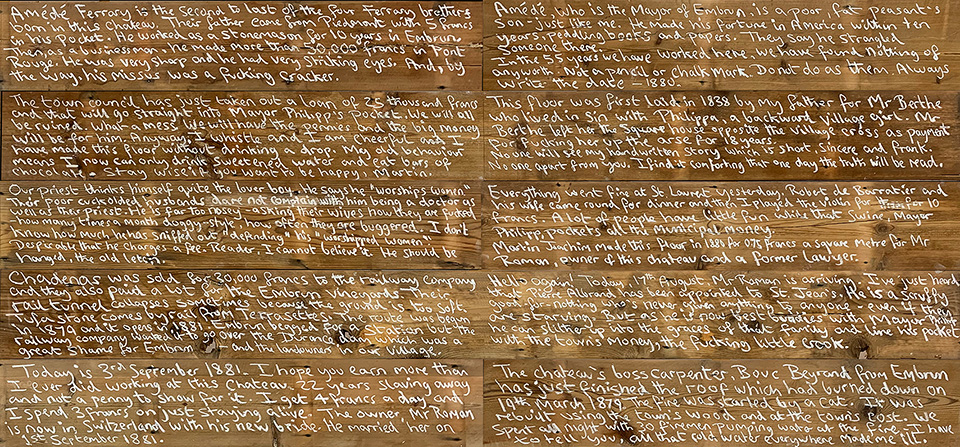 Amédé Ferrang is the Second to last of the four Ferrang brothers
born in this Chateau. Their father came from Piedmont with 5 francs
in his pocket. He worked as a Stonemason for 10 years in Embrun.
Then, as a businessman, he made more than 50,000 francs at Pont
Rouge. He was very sharp and he had very striking eyes. And, by
the way, his missis was a fucking cracker.
Amédé who is the Mayor of Embrun, is a poor, fat peasant's
Son - just like me. He made his fortune in America within ten
years, peddling books and papers. They say he strangled
someone there.
In the 55 years we have worked here, we have found nothing of
any worth. Not a pencil or Chalk Mark. Do not do as them. Always
write the date - 1880.
The town council has just taken out a loan of 25 thousand francs
and that will go straight into Mayor Philipp's pocket. We will all
be ruined. What a mess. We will have the pennies and the big money
will be for him. Anyway, I whistle as if I were cheerful and I
have made this floor without drinking a drop. My old but various
means I now can only drink sweetened water and eat bars of
chocolate. Stay wise if you want to be happy. Martin.
This floor was first laid in 1838 by my father for Mr Berthe
who lived in sin with Philippa, a backward village girl. Mr
Berthe left her the Square house opposite the village cross as payment
for fucking her up the arse for 18 years.
No one will see my handwritten story. It is short, sincere and frank.
No one apart from you. I find it comforting that one day the truth will be read.
Our priest thinks himself quite the lover boy. He says he "worships women"
Their poor cuckolded husbands dare not complain with him being a doctor as
well as their priest. He is far too nosey, asking their wives how they are fucked
how many times a month, doggy style, how often they are buggered. I don't
know how much he has sniffed out "defending" his "worshipped women".
Despicable that he charges a fee. Reader, I can't believe it. He should be
hanged, the old letch.
Everything went fine at St Laurent yesterday. Robert de Sarratier and
his wife came round for dinner and then I played the Violin for them for 10
francs. A lot of people have little fun while that Swine, Mayor
Philipp, pockets all the Municipal money.
Martin Joachim made this floor in 1880 for 075 francs a square metre for Mr
Roman, owner of this chateau and a former lawyer.
Chadenas was sold for 30,000 francs to the railway company
and they also paid a lot for the Embrun vineyards. Their
rail tunnel collapses sometimes because the ground is too soft.
The stone comes by rail from Terrasettes. The route began
in 1870 and it opens in 1881. Embrun begged for a station but the
railway company wanted it to go over the Durance dam which was a
great Shame for Embrun and the landowners in our village.
Hello again. Today, 17th August, Mr Roman is arriving. I've just heard
that Pierre Allibrand has been appointed to St Jean's. He is a scruffy
good for nothing who's never given anything to anyone even if they
are starving. But as you know, best buddies with Mayor Philipp
he can slither up into the graces of a good family and line his pocket
with the town's money, the fucking little crook.
Today is 3rd September 1881. I hope you earn more than
I ever did working at this Chateau. 22 years slaving away
and not a penny to show for it. I get 4 francs a day and
I spend 3 francs on just staying alive. The owner, Mr Roman
is now in Switzerland with his new bride. He married her on
1st September 1881.
The chateau's boss carpenter Bouc Beyrand from Embrun
has just finished the roof which had burned down on
19th March 1879. The fire was started by a cat. It was
rebuilt using the town's wood and at the town's cost. We
spent all night with 30 firemen pumping water at the fire. If I have
to tell you, all that river water everywhere made